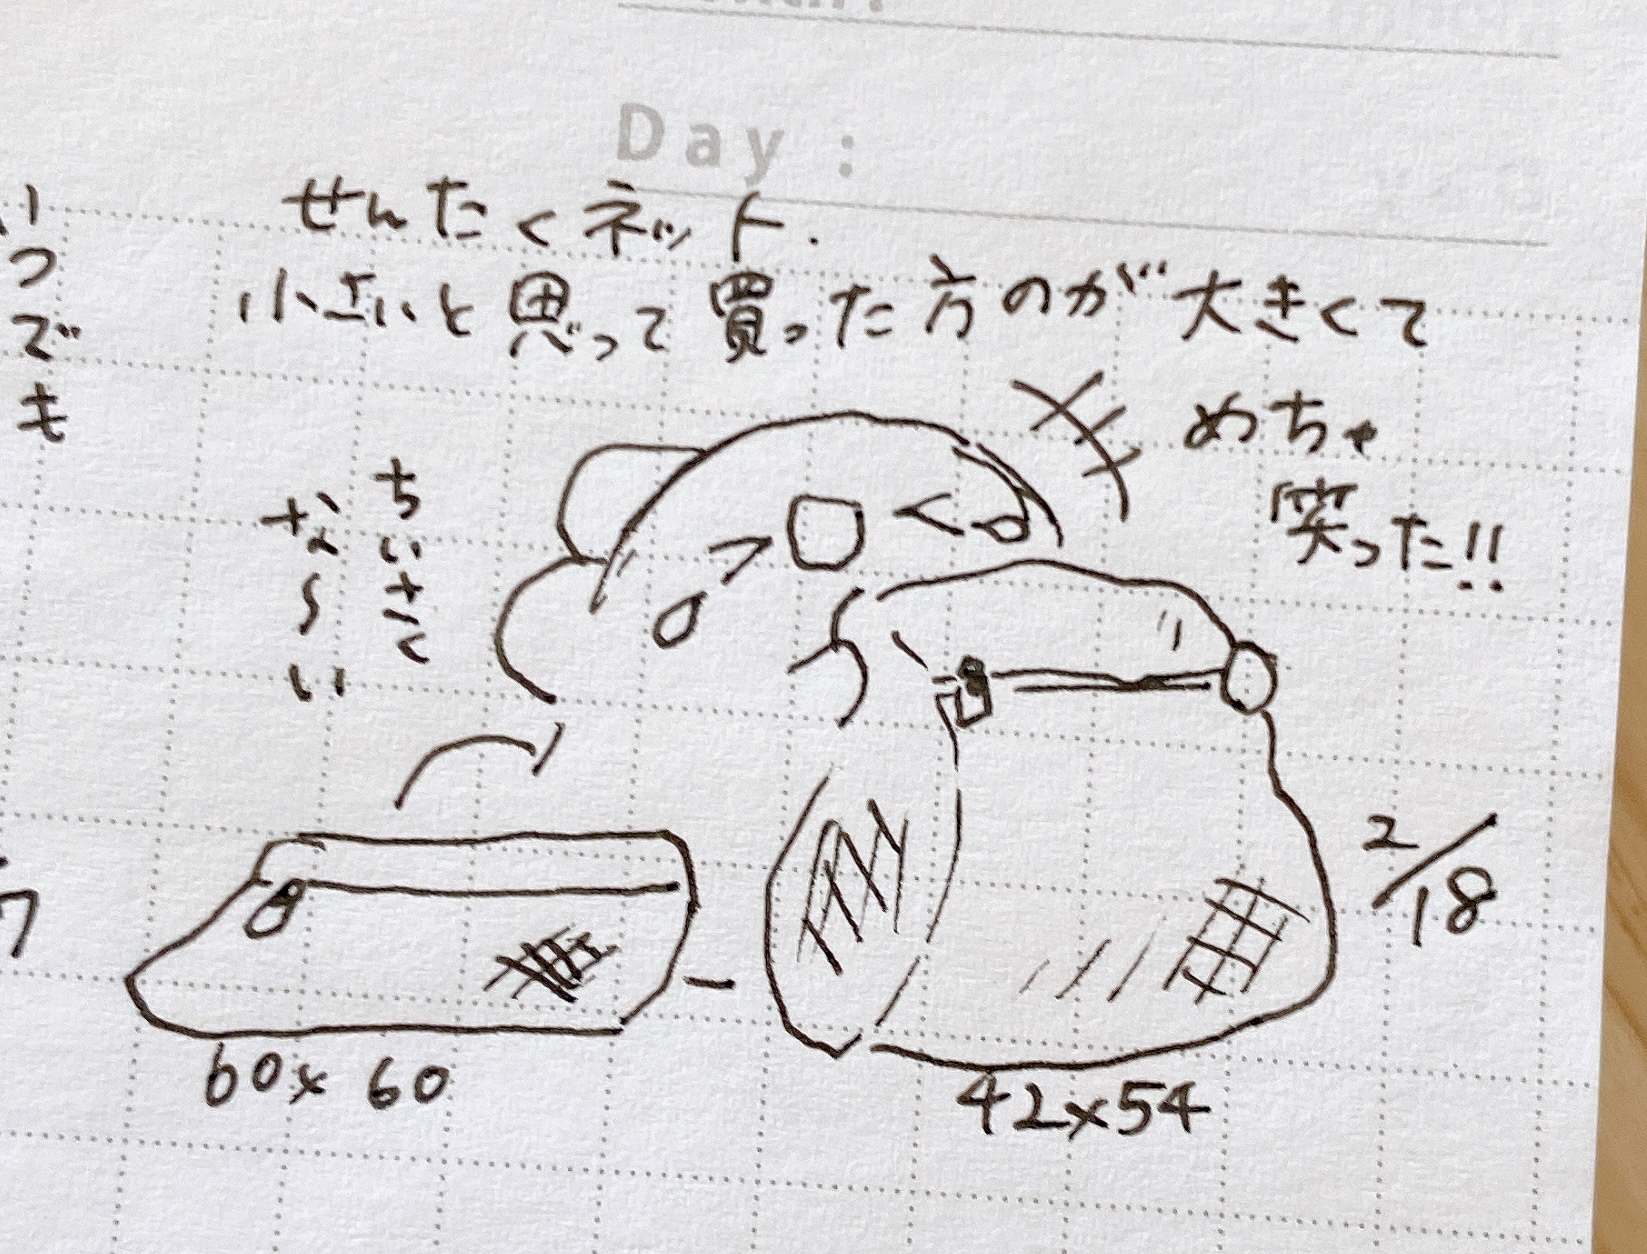 Day :
せんたくネット.
小さいと思って買った方のが大きくて
めちゃ
笑った!!
ちいさく
な〜い
いつでも
60×60
42×54
2/18